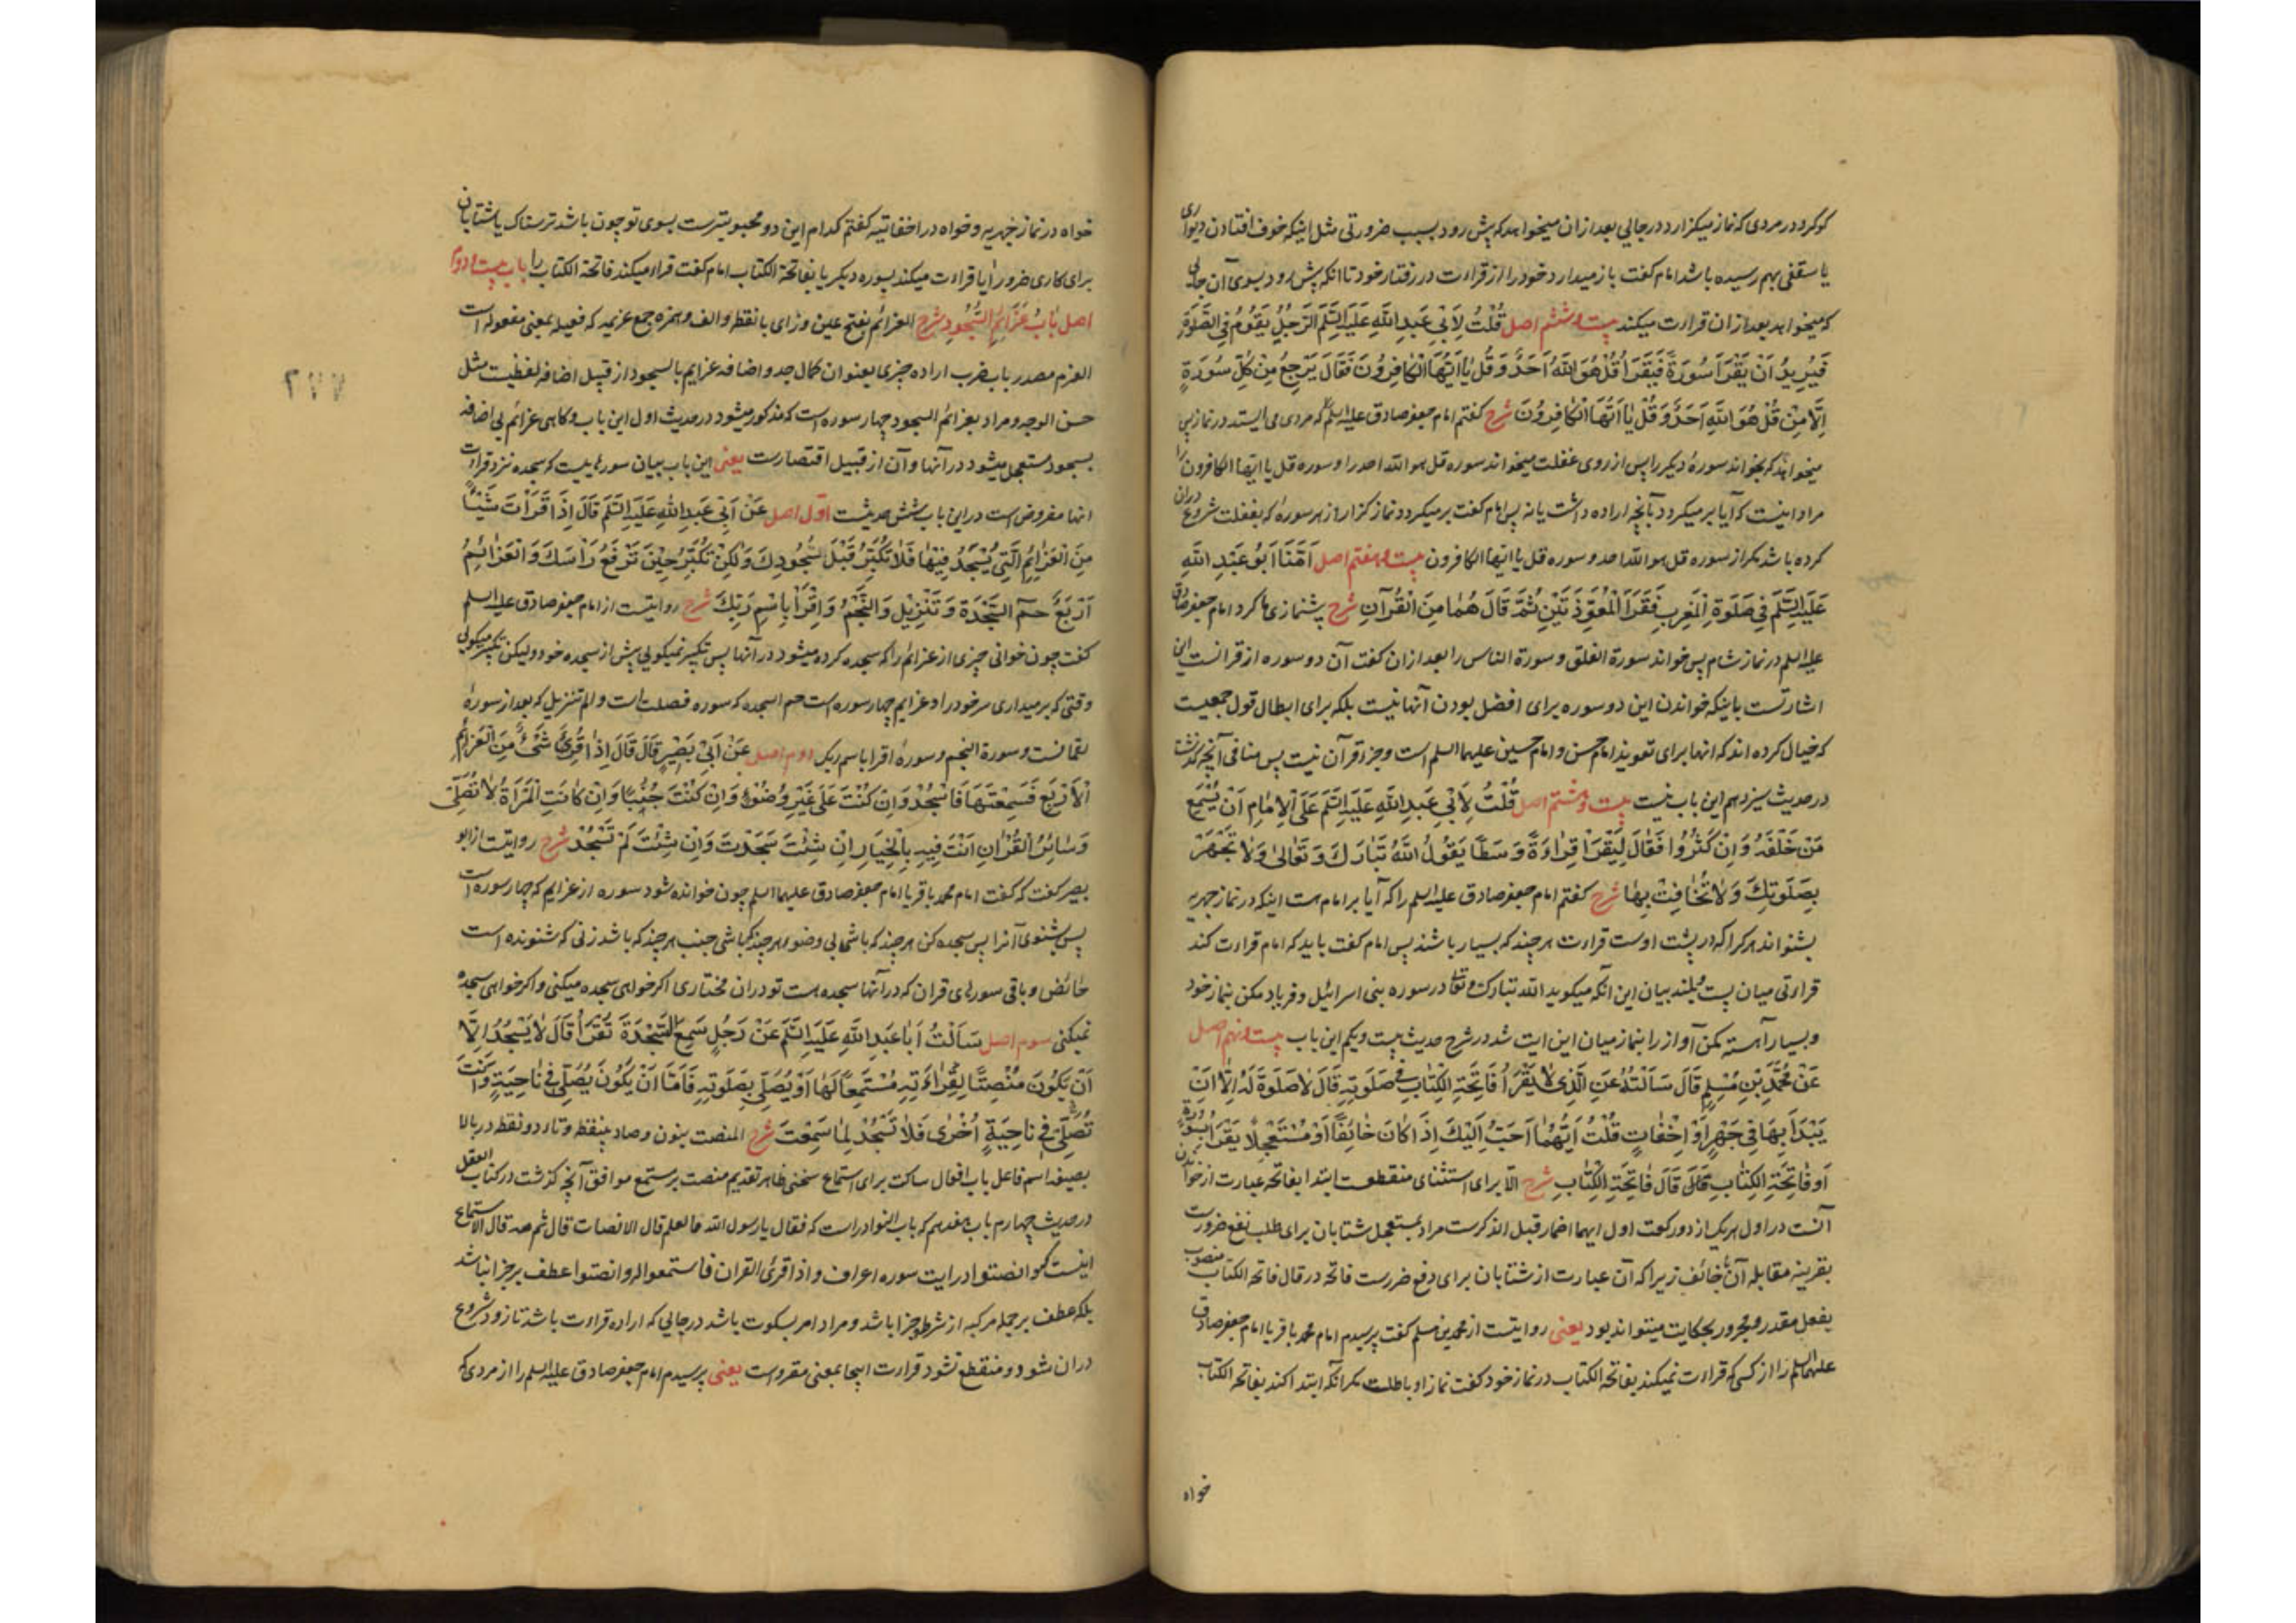 کو کرد در مردی که نماز میکزارد در جایی بعد از ان میخواهد که پیش رود بسبب ضرورتی مثل اینکه خوف افتادن دیواری
یا سقفی بهم رسیده باشد امام کفت باز میدارد خود را از قراءت در رفتار خود تا انکه پیش رود بسوی آن جایی
که میخواهد بعد از ان قراءت میکند بیست و ششم اصل قُلْتُ لِاَبِی عَبدِ اللّٰهِ عَلَیْهِ السَّلَم الرَّجُلُ یَقُومُ فِی الصَّلٰوةِ
فَیُرِیدُ اَنْ یَقْرَاَ سُورَةً فَیَقْرَاُ قُلْ هُوَ اللّٰهُ اَحَدٌ وَ قُلْ یٰا اَیُّهَا الْکٰافِرُونَ فَقَالَ یَرْجِعُ مِنْ کُلِّ سُورَةٍ
اِلَّا مِنْ قُلْ هُوَ اللّٰهُ اَحَدٌ وَ قُلْ یٰا اَیُّهَا الْکٰافِرُونَ شرح کفتم امام جعفر صادق علیه السلم که مردی می ایستد در نماز پس
میخواهد که بخواند سورهٔ دیکر را پس از روی غفلت میخواند سوره قل هو الله احد را و سوره قل یا ایها الکافرون را
مراد اینست که آیا بر میکردد بآنچه اراده داشت یا نه پس امام کفت بر میکردد نماز کزار از هر سورهٔ که بغفلت شروع دران
کرده باشد مکر از سوره قل هو الله احد و سوره قل یا ایها الکافرون بیست و هفتم اصل اَمَّنَا اَبُو عَبْدِ اللّٰهِ
عَلَیْهِ السَّلَم فِی صَلٰوةِ الْمَغرِبِ فَقَرَاَ الْمُعَوِّذَتَیْنِ ثُمَّ قَالَ هُمٰا مِنَ الْقُرْآنِ شرح پیشنمازی ما کرد امام جعفر صادق
علیه السلم در نماز شام پس خواند سورة الفلق و سورة الناس را بعد از ان کفت آن دو سوره از قرانست این
اشارتست باینکه خواندن این دو سوره برای افضل بودن آنها نیست بلکه برای ابطال قول جمعیست
که خیال کرده اند که انها برای تعویذ امام حسن و امام حسین علیهما السلم است و جزء قرآن نیست پس منافی آنچه کذشت
در حدیث سیزدهم این باب نیست بیست و هشتم اصل قُلْتُ لِاَبِی عَبدِ اللّٰهِ عَلَیْهِ السَّلَم عَلَی الْاِمٰامِ اَنْ یُسْمِعَ
مَنْ خَلْفَهُ وَ اِنْ کَثُرُوا فَقَالَ لِیَقْرَأْ قِرٰاءَةً وَسَطًا یَقُولُ اللّٰهُ تَبٰارَکَ وَ تَعٰالیٰ وَ لٰا تَجْهَرْ
بِصَلٰوتِکَ وَ لٰا تُخٰافِتْ بِهٰا شرح کفتم امام جعفر صادق علیه السلم را که آیا بر امام هست اینکه در نماز جهریه
بشنواند هر کرا که در پشت اوست قراءت هر چند که بسیار باشند پس امام کفت باید که امام قراءت کند
قراءتی میان پست و بلند بیان این آنکه میکوید الله تبارک و تعا در سوره بنی اسرائیل و فریاد مکن بنماز خود
و بسیار آهسته مکن آواز را بنماز میان این ایت شد در شرح حدیث بیست و یکم این باب بیست و نهم اصل
عَنْ مُحَمَّدِ بْنِ مُسْلِمٍ قَالَ سَاَلْتُهُ عَنِ الَّذِی لٰا یَقْرَأُ فَاتِحَةَ الْکِتٰابِ فِی صَلٰوتِهِ قَالَ لٰا صَلٰوةَ لَهُ اِلَّا اَنْ
یَبْدَاَ بِهٰا فِی جَهْرٍ اَوْ اِخْفٰاتٍ قُلْتُ اَیُّهُمٰا اَحَبُّ اِلَیْکَ اِذَا کٰانَ خٰائِفًا اَوْ مُسْتَعْجِلًا یَقْرَأُ بِسُورَةٍ
اَو فٰاتِحَةِ الْکِتٰابِ قَالَ فٰاتِحَةَ الْکِتٰابِ شرح الّا برای استثنای منقطعست ابتدا بفاتحه عبارت از خواندن
آنست در اول هر یک از دو رکعت اول ایهما اضمار قبل الذکرست مراد بمستعجل شتابان برای طلب نفع ضروریست
بقرینه مقابله آن با خائف زیرا که آن عبارت از شتابان برای دفع ضررست فاتحه در قال فاتحة الکتاب منصوب
بفعل مقدر و مجرور بحکایت میتواند بود یعنی روایتست از محمد بن مسلم کفت پرسیدم امام محمد باقر یا امام جعفر صادق
علیهما السلم را از کسی که قراءت نمیکند بفاتحة الکتاب در نماز خود کفت نماز او باطلست مکر آنکه ابتدا کند بفاتحة الکتاب
خواه
خواه در نماز جهریه و خواه در اخفاتیه کفتم کدام این دو محبوبترست بسوی تو چون باشد ترسناک یا شتابان
برای کاری ضرور آیا قراءت میکند بسوره دیکر یا بفاتحة الکتاب امام کفت قراءت میکند فاتحة الکتاب را باب بیست و دوم
اصل بَابُ عَزَائِمِ السُّجُودِ شرح العزائم بفتح عین و زای با نقطه و الف و همزه جمع عزیمه که فعیله بمعنی مفعوله است
العزم مصدر باب ضرب اراده چیزی بعنوان کمال جد و اضافه عزایم بالسجود از قبیل اضافه لفظیست مثل
حسن الوجه و مراد بعزائم السجود چهار سوره است که مذکور میشود در حدیث اول این باب و کاهی عزائم بی اضافه
بسجود مستعمل میشود در آنها و آن از قبیل اقتصارست یعنی این باب بیان سورهاییست که سجده نزد قراءت
انها مفروض است در این باب شش حدیث است اوّل اصل عَنْ اَبِی عَبدِ اللّٰهِ عَلَیْهِ السَّلَم قَالَ اِذَا قَرَأْتَ شَیْئًا
مِنَ الْعَزٰائِمِ الَّتِی یُسْجَدُ فِیْهٰا فَلٰا تُکَبِّرْ قَبْلَ سُجُودِکَ وَلٰکِنْ تُکَبِّرُ حِیْنَ تَرْفَعُ رَاْسَکَ وَ الْعَزٰائِمُ
اَرْبَعٌ حٰمٓ السَّجْدَةُ وَ تَنْزِیلُ وَ النَّجْمُ وَ اقْرَأْ بِاسْمِ رَبِّکَ شرح روایتست از امام جعفر صادق علیه السلم
کفت چون خوانی چیزی از عزائم را که سجده کرده میشود در آنها پس تکبیر نمیکویی پیش از سجده خود ولیکن تکبیر میکویی
وقتی که برمیداری سر خود را و عزایم چهار سوره است حم السجده که سوره فصلت است و الم تنزیل که بعد از سورهٔ
لقمانست و سورة النجم و سورهٔ اقرا باسم ربک دوم اصل عَنْ اَبِیْ بَصِیْرٍ قَالَ قَالَ اِذٰا قُرِئَ شَیْءٌ مِنَ الْعَزٰائِمِ
الْاَرْبَعِ فَسَمِعْتَهَا فَاسْجُدْ وَ اِنْ کُنْتَ عَلٰی غَیْرِ وُضُوءٍ وَ اِنْ کُنْتَ جُنُبًا وَ اِنْ کٰانَتِ الْمَرْاَةُ لٰا تُصَلِّی
وَ سٰائِرُ الْقُرْاٰنِ اَنْتَ فِیهِ بِالْخِیَارِ اِنْ شِئْتَ سَجَدْتَ وَ اِنْ شِئْتَ لَمْ تَسْجُدْ شرح روایتست از ابو
بصیر کفت که کفت امام محمد باقر یا امام جعفر صادق علیهما السلم چون خوانده شود سوره از عزایم که چهار سوره است
پس شنوی آنرا پس سجده کن هر چند که باشی بی وضو و هر چند که باشی جنب هر چند که باشد زنی که شنونده است
حائض و باقی سورهای قران که در آنها سجده هست تو در ان مختاری اکر خواهی سجده میکنی و اکر خواهی سجده
نمیکنی سوم اصل سَاَلْتُ اَبَا عَبدِ اللّٰهِ عَلَیْهِ السَّلَم عَنْ رَجُلٍ سَمِعَ السَّجْدَةَ تُقْرَأُ قَالَ لٰا یَسْجُدُ اِلَّا
اَنْ یَکُونَ مُنْصِتًا لِقِرٰاءَتِهِ مُسْتَمِعًا لَهٰا اَوْ یُصَلِّی بِصَلٰوتِهِ فَاَمَّا اَنْ یَکُونَ یُصَلِّی فِی نٰاحِیَةٍ وَ اَنْتَ
تُصَلِّی فِی نٰاحِیَةٍ اُخْریٰ فَلٰا تَسْجُدْ لِمٰا سَمِعْتَ شرح المنصت بنون و صاد بینقطه و تاء دو نقطه در بالا
بصیغه اسم فاعل باب افعال ساکت برای استماع سخنی ظاهر تقدیم منصت بر مستمع موافق آنچه کذشت در کتاب العقل
در حدیث چهارم باب هفدهم که باب النوادر است که فقال یا رسول الله ما العلم قال الانصات قال ثم مه قال الاستماع
اینست که و انصتوا در ایت سوره اعراف و اذا قرئ القران فاستمعوا له و انصتوا عطف بر جزا نباشد
بلکه عطف بر جمله مرکبه از شرط و جزا باشد و مراد امر بسکوت باشد در جایی که اراده قراءت باشد تا زود شروع
در ان شود و منقطع نشود قراءت اینجا بمعنی مقروست یعنی پرسیدم امام جعفر صادق علیه السلم را از مردی که